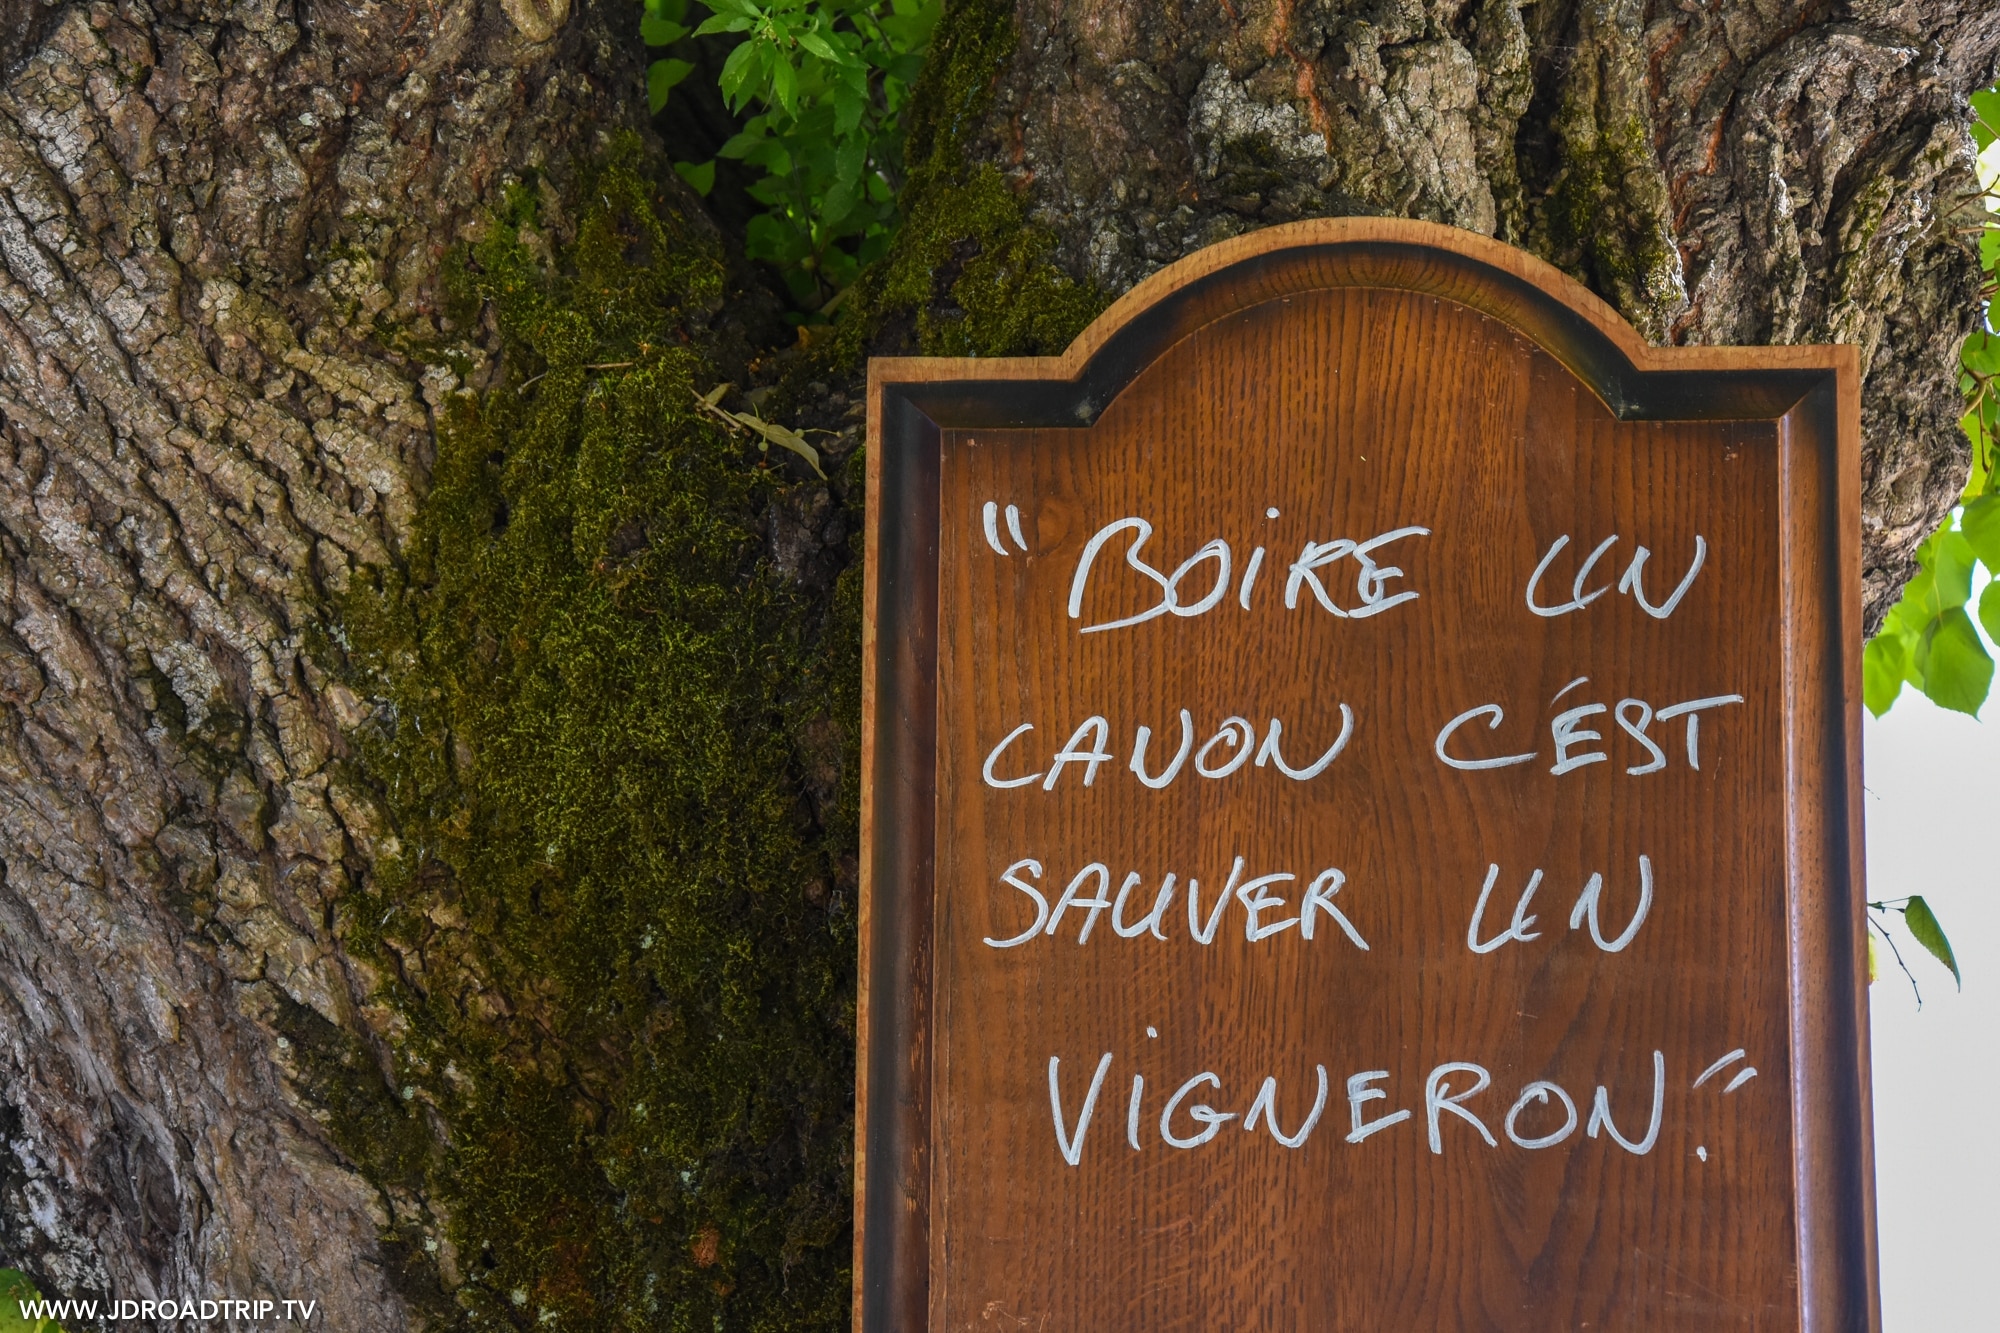 " BOIRE UN
CANON C'EST
SAUVER UN
VIGNERON."
WWW.JDROADTRIP.TV